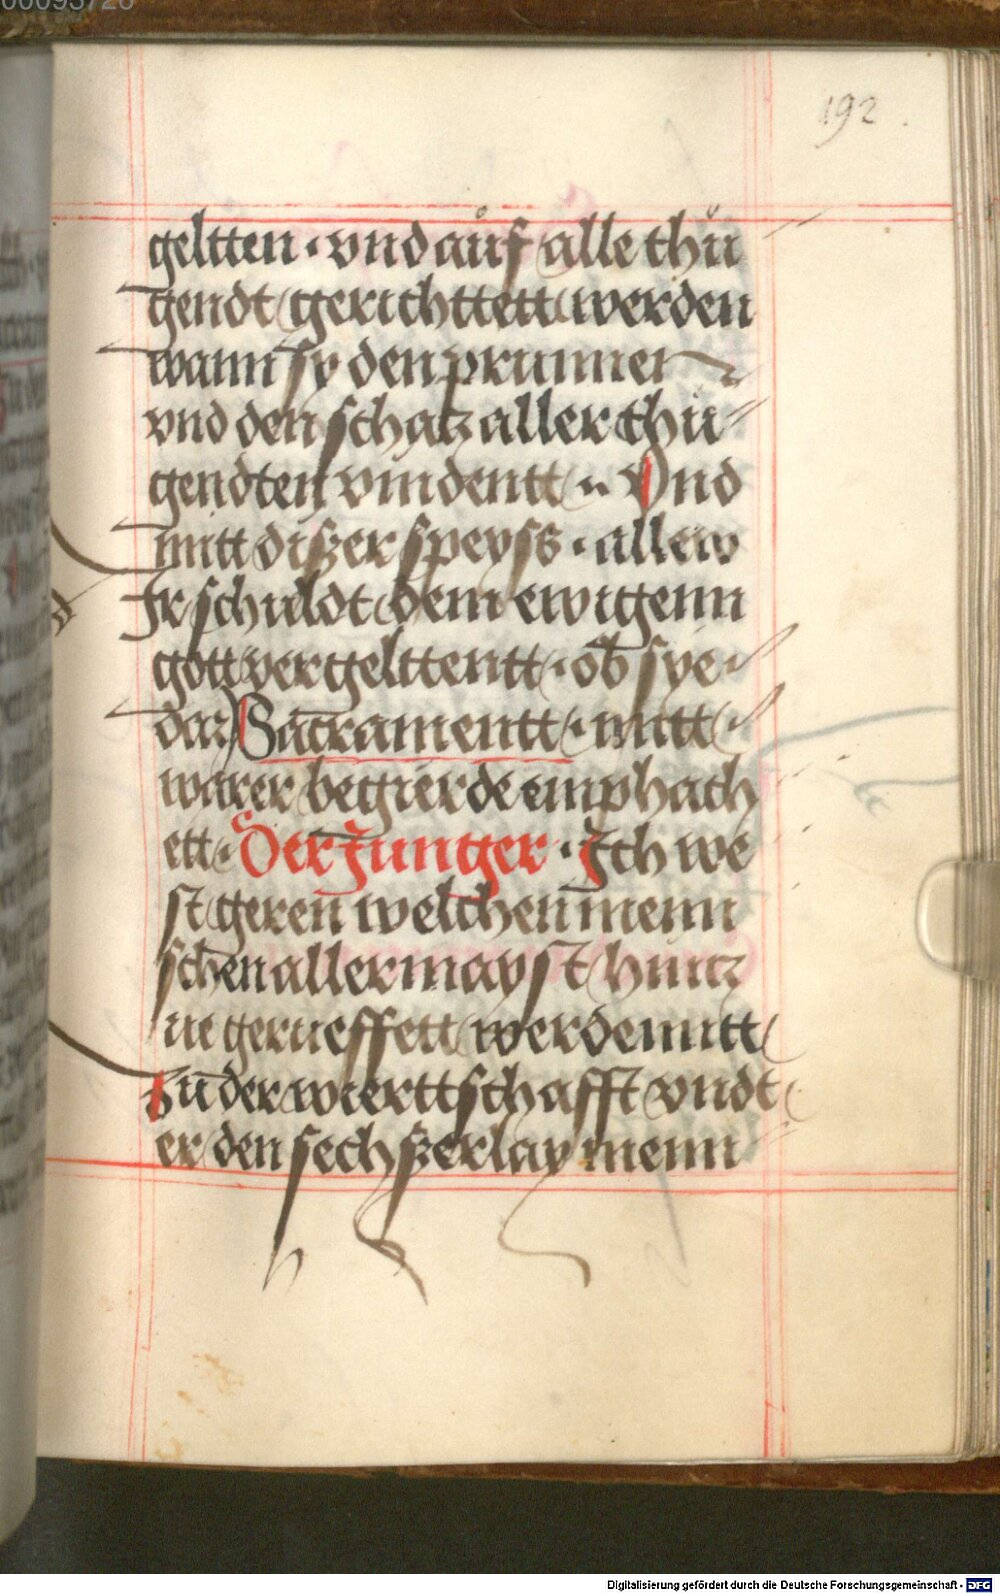 00093726
192
geltten · vnd auf alle thů
gendt gerichttett werden
wann sy den prunnen
vnd den schatz aller thu
gendten vindentt · Vnd
mitt diszer speyss · allew
Ir schuldt dem ewigenn
gott vergelttentt · ob sye
daz Sacramentt · mitt
warer begierde emphach
ett · Der Junger · Ich we
st geren welchen menn
schen allermayst hintz
ue gerueffett werde mitt
zu der wierttschafft vndt
er den sechszerlay menn
Digitalisierung gefördert durch die Deutsche Forschungsgemeinschaft - DFG